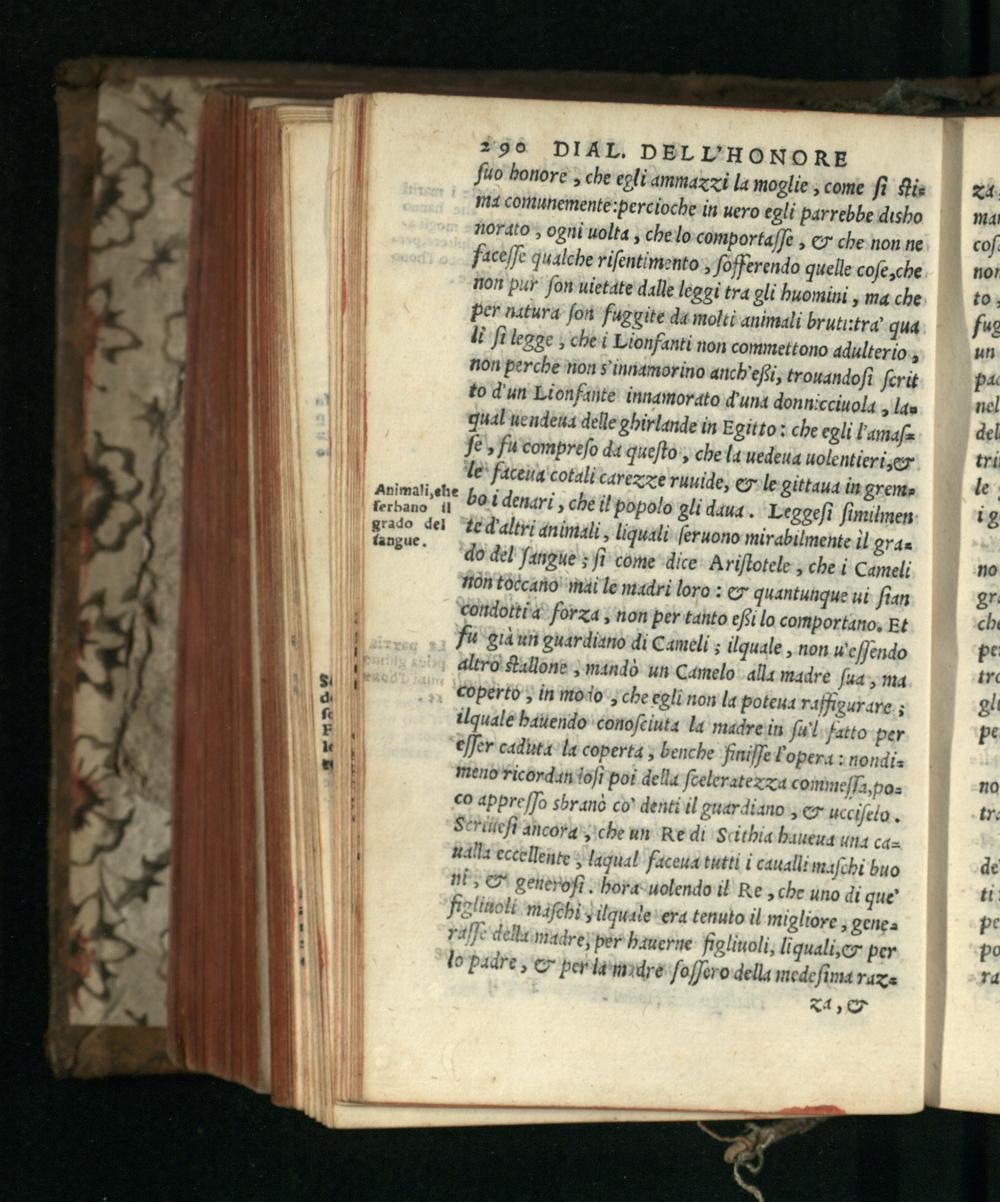 290 DIAL. DELL'HONORE
suo honore, che egli ammazzi la moglie, come si sti=
ma comunemente: percioche in uero egli parrebbe disho
norato, ogni uolta, che lo comportasse, & che non ne
facesse qualche risentimento, sofferendo quelle cose, che
non pur son uietate dalle leggi tra gli huomini, ma che
per natura son fuggite da molti animali bruti: tra' qua
li si legge, che i Lionfanti non commettono adulterio,
non perche non s'innamorino anch'essi, trouandosi scrit
to d'un Lionfante innamorato d'una donnicciuola, la=
qual uendeua delle ghirlande in Egitto: che egli l'amas=
se, fu compreso da questo, che la uedeua uolentieri, &
le faceua cotali carezze ruuide, & le gittaua in grem=
bo i denari, che il popolo gli daua. Leggesi similmen
te d'altri animali, liquali seruono mirabilmente il gra=
do del sangue; si come dice Aristotele, che i Cameli
non toccano mai le madri loro: & quantunque ui sian
condotti a forza, non per tanto essi lo comportano. Et
fu già un guardiano di Cameli; ilquale, non u'essendo
altro stallone, mandò un Camelo alla madre sua, ma
coperto, in modo, che egli non la poteua raffigurare;
ilquale hauendo conosciuta la madre in su'l fatto per
esser caduta la coperta, benche finisse l'opera: nondi=
meno ricordandosi poi della sceleratezza commessa, po=
co appresso sbranò co' denti il guardiano, & ucciselo.
Scriuesi ancora, che un Re di Scithia haueua una ca=
ualla eccellente, laqual faceua tutti i caualli maschi buo
ni, & generosi. hora uolendo il Re, che uno di que'
figliuoli maschi, ilquale era tenuto il migliore, gene=
rasse della madre, per hauerne figliuoli, liquali, & per
lo padre, & per la madre fossero della medesima raz=
za, &
Animali, che
serbano il
grado del
sangue.